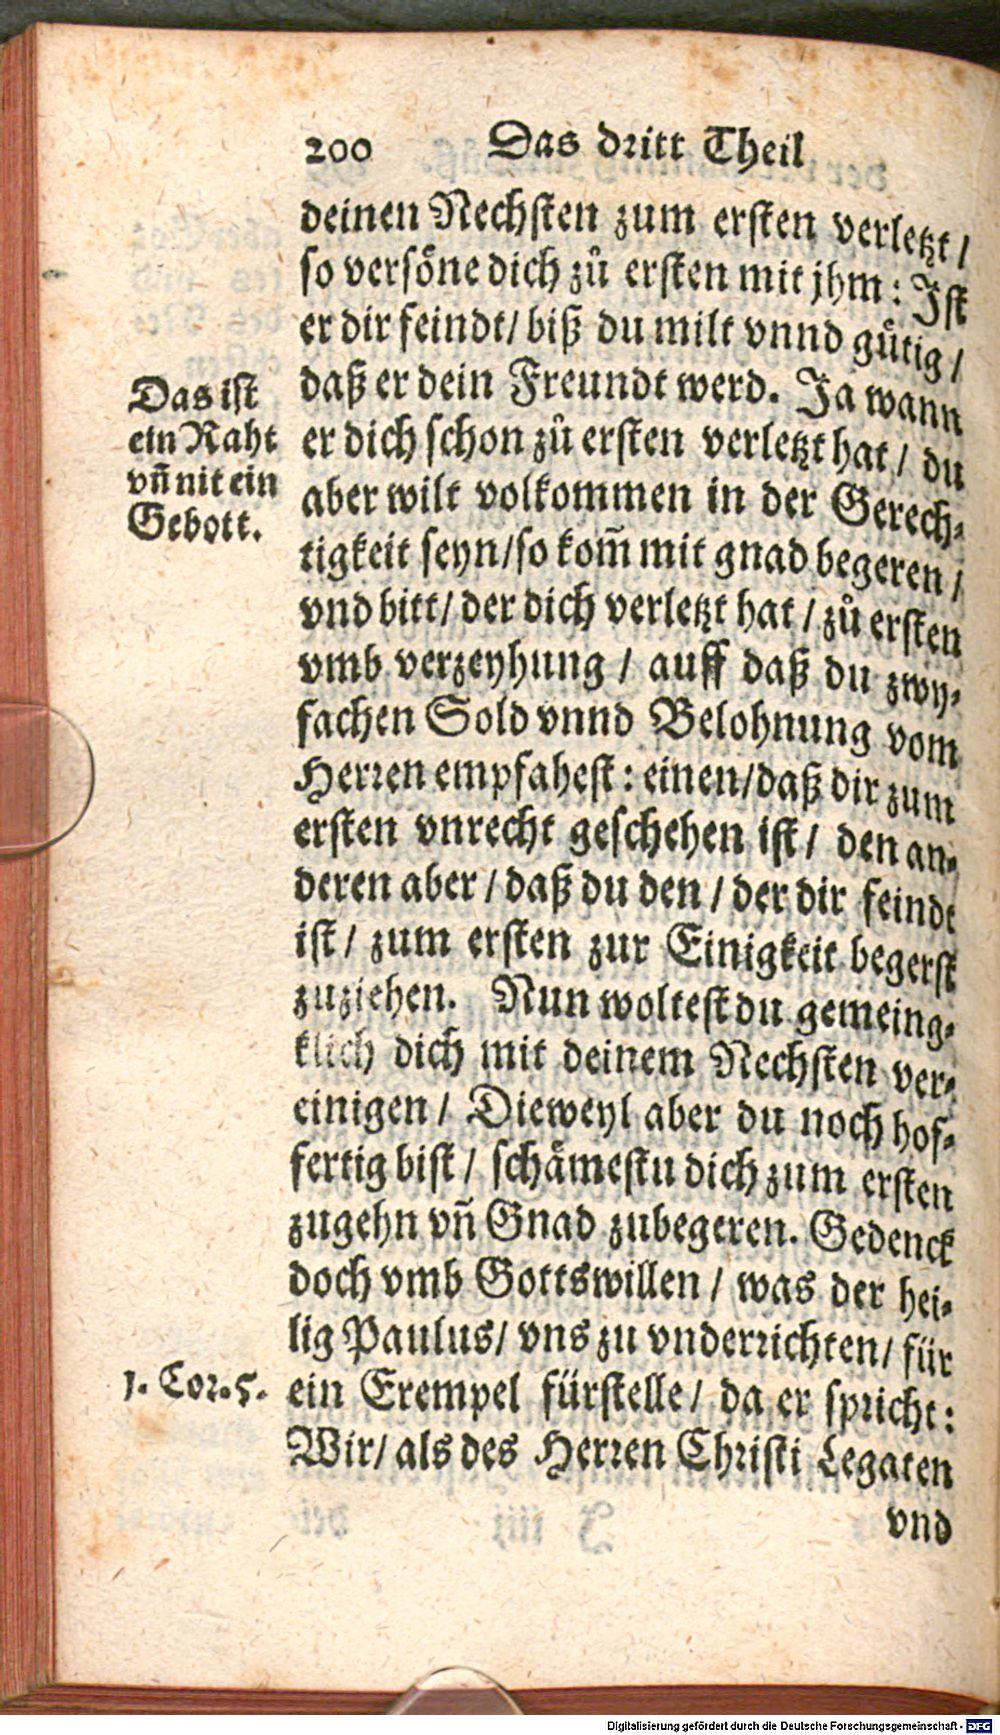 200 Das dritt Theil
deinen Nechsten zum ersten verletzt /
so versöne dich zů ersten mit jhm : Jst
er dir feindt/ biß du milt vnnd gůtig /
daß er dein Freundt werd. Ja wann
er dich schon zů ersten verletzt hat / du
aber wilt volkommen in der Gerech-
tigkeit seyn/so kom̃ mit gnad begeren /
vnd bitt/ der dich verletzt hat / zů ersten
vmb verzeyhung / auff daß du zwy-
fachen Sold vnnd Belohnung vom
Herren empfahest : einen/daß dir zum
ersten vnrecht geschehen ist / den an-
deren aber / daß du den / der dir feindt
ist / zum ersten zur Einigkeit begerst
zuziehen. Nun woltest du gemeing-
klich dich mit deinem Nechsten ver-
einigen / Dieweyl aber du noch hof-
fertig bist / schämestu dich zum ersten
zugehn vñ Gnad zubegeren. Gedenck
doch vmb Gottswillen / was der hei-
lig Paulus/ vns zu vnderrichten/ für
ein Exempel fürstelle/ da er spricht :
Wir/ als des Herren Christi Legaten
vnd
Das ist
ein Raht
vñ nit ein
Gebott.
1. Cor. 5.
Digitalisierung gefördert durch die Deutsche Forschungsgemeinschaft - DFG